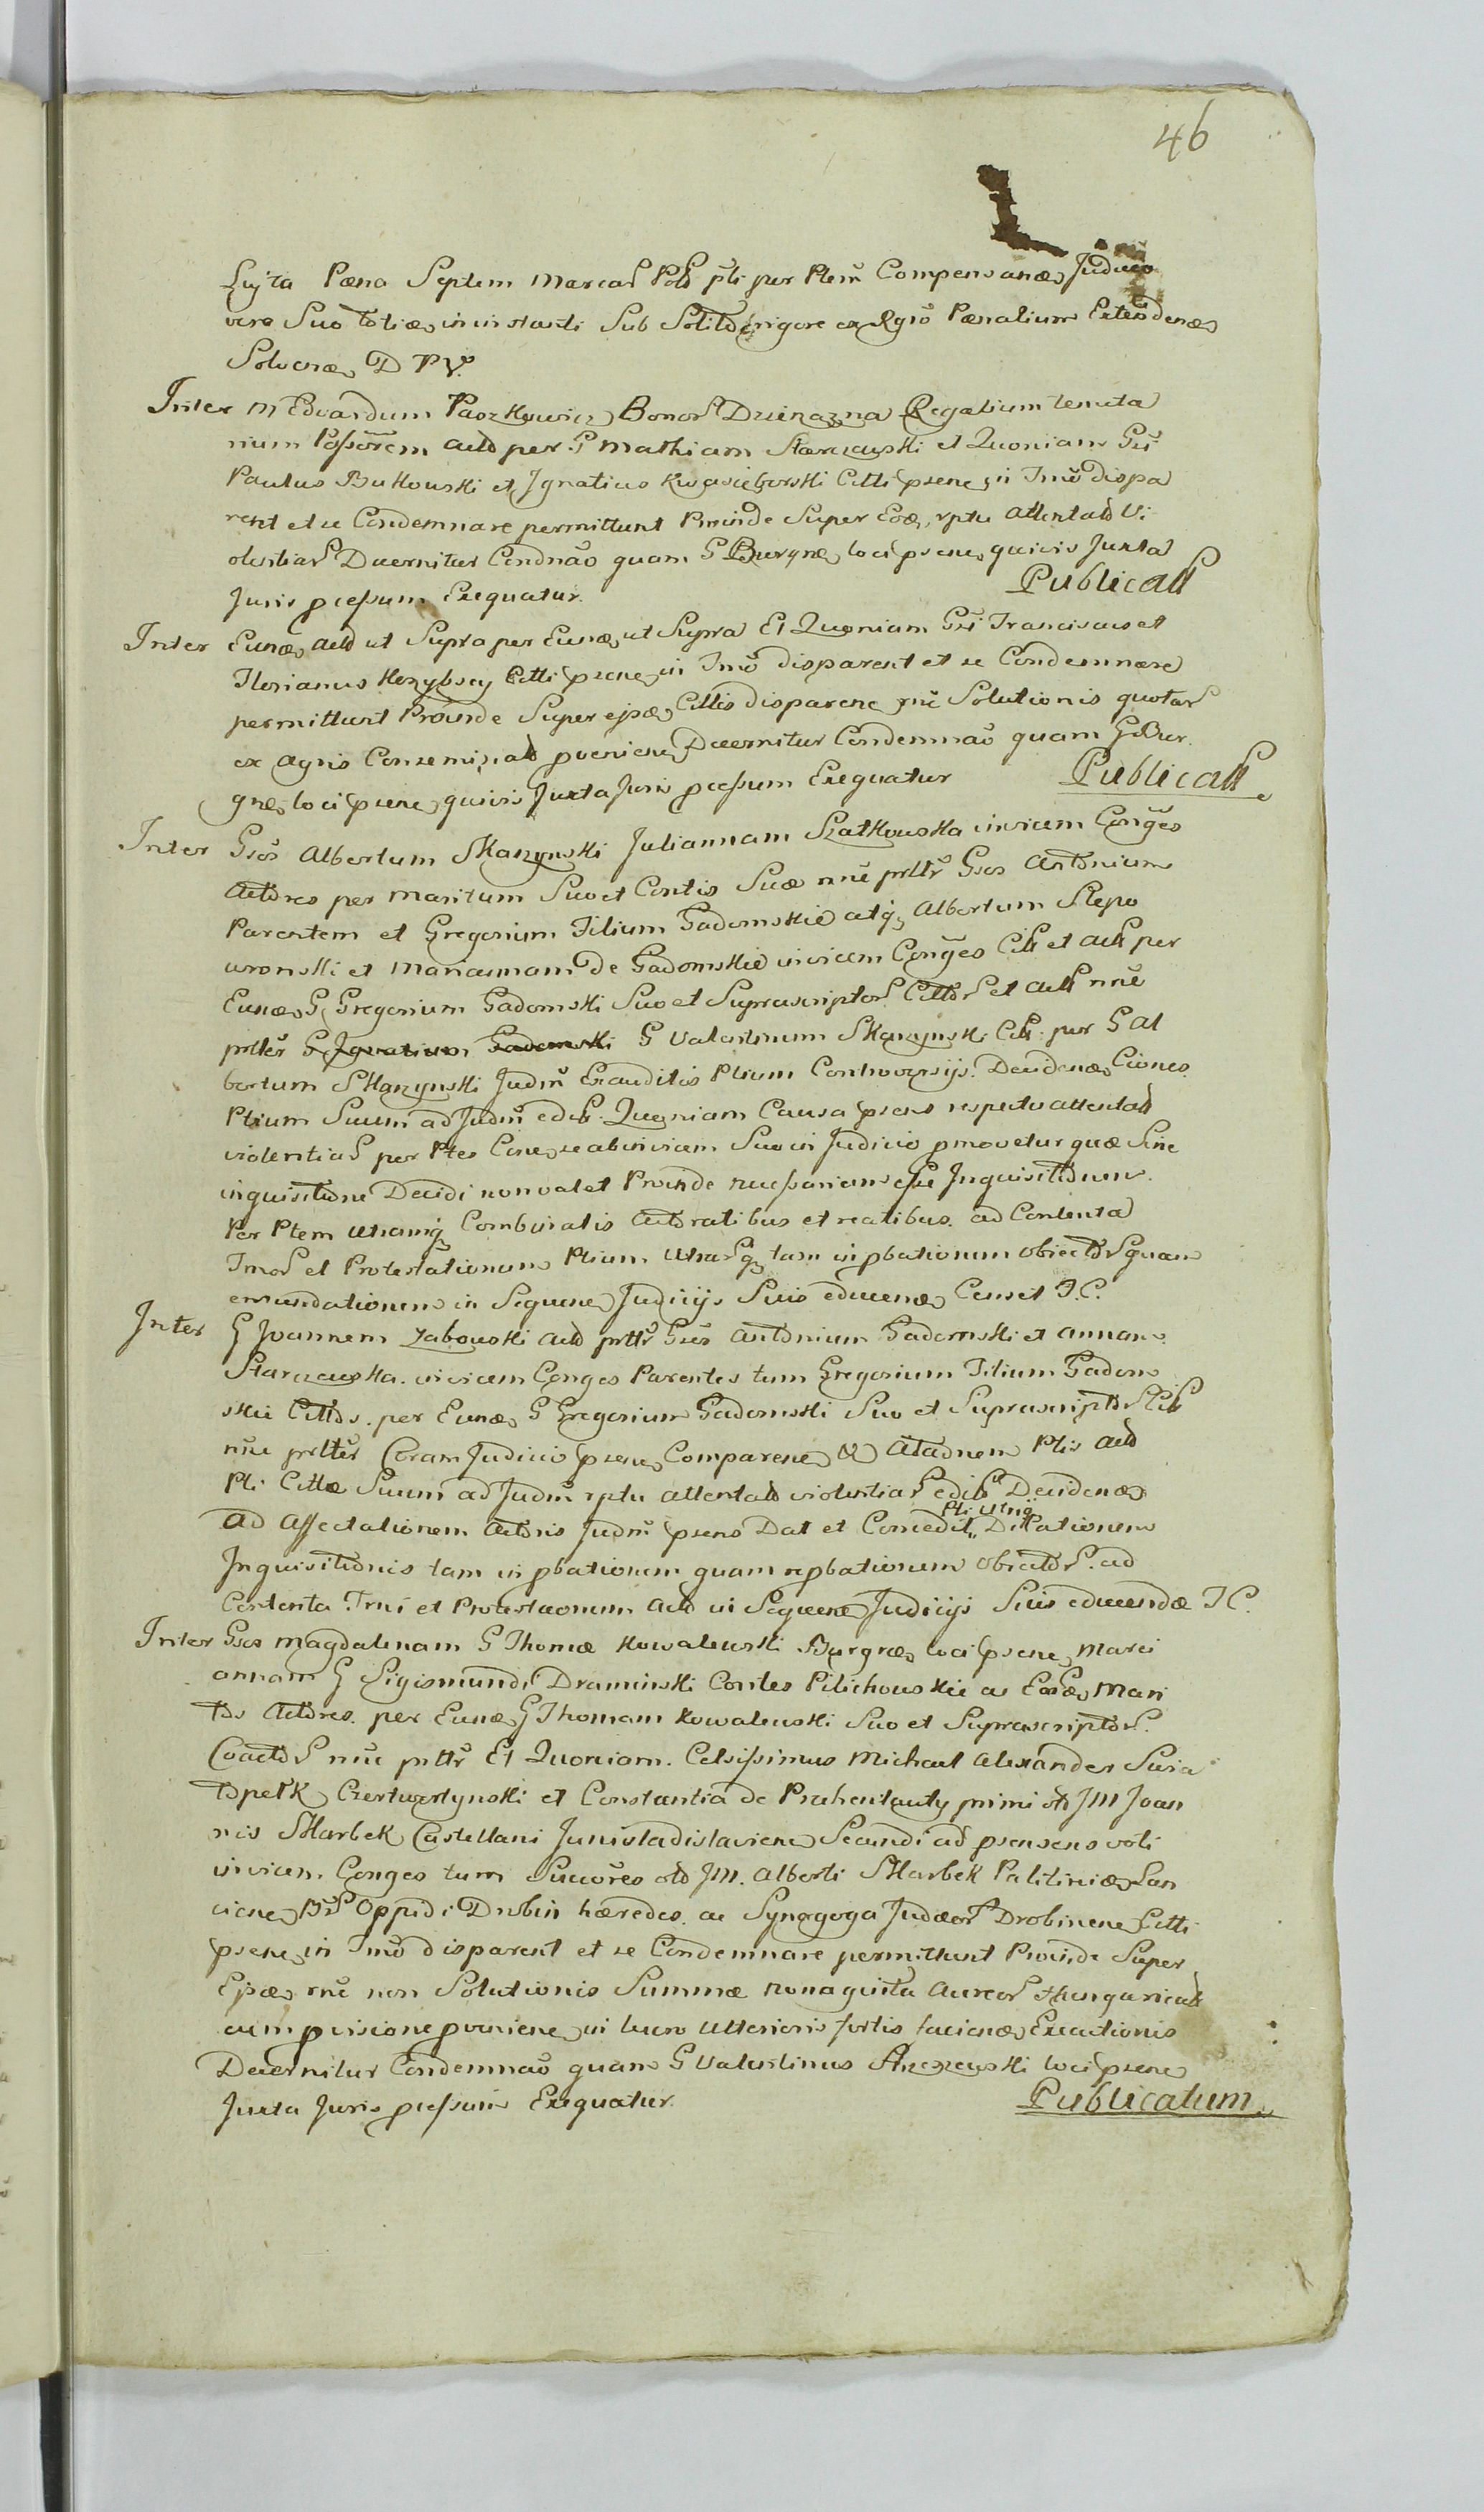 46
Luita Pæna Septem Marcar Pol pti per Ptem Compensanæ Judicio
vero Suo totiæ in instanti Sub Solito rigore ex Rgro Pænalium Extendenæ
Solvenæ D P V.
Inter M Edvardum Paszkowicz Bonor Dzierzazna Regalium tenuta
rium Possorem Acto per G Mathiam Starczewski et Quoniam Gsi
Paulus Bukowski et Ignatius Kwasieborski Citti psene in Tmo dispa
rent et se Condemnare permittunt Proinde Super Eosæ rptu attentato Vi
olentiar Decernitur Condnao quam G Burgræ loci psene quivis Juxta
Juris pcessum Exequatur. Publicatt
Inter Eunæ Acto ut Supra per Eunæ ut Supra Et Quoniam Gsi Franciscus et
Florianus Krzybscy Citti psene in Tmo disparent et se Condemnare
permittunt Proinde Super ejsæ Cittis disparene rne Solutionis quotar
ex Agris Conseminato pveniene Decernitur Condemnao quam G Bur
græ loci psene quivis Juxta Juris pcessum Exequatur Publicatt
Inter Gsos Albertum Skarzynski Juliannam Szatkowska invicem Conges
Actores per Maritum Suo et Contis Suæ nne prltr Gsos Antonium
Parentem et Gregorium Filium Gadomskie atq Albertum Slepo
wronski et Mariannam de Gadomskie invicem Conges Citt et Act per
Eunæ G Gregorium Gadomski Suo et Suprascriptor Cittor et Act nne
prlter G Ignatium Gadomski G Valentinum Skarzynski Citt per G Al
bertum Skarzynski Judm Exauditis Ptium Controversijs. Decidenæ Ciones
Ptium Suum ad Judm edit. Quoniam Causa psens respectu attentato
violentiar per Ptes Cine se ab invicem Suo in Judicio pmovetur quæ Sine
inquisitione Decidi non valet Proinde necessariam esse Inquisitionem
Per Ptem utramq Combinatis Actoratibus et reatibus ad Contenta
Tmor et Protestationum Ptium Utrarq tam in pbationem obiector quam
emundationem in Sequene Judicijs Suis educenæ Censet J.C.
Inter G Joannem Zabowski Acto prltr Gsos Antonium Gadomski et Annam
Starczewska invicem Conges Parentes tum Gregorium Filium Gadom
skie Cittos per Eunæ G Gregorium Gadomski Suo et Suprascriptor Citt
nne prlter Coram Judicio psene Comparene Ad Ataonem Ptis Acto
Pti Cittæ Suum ad Judm rptu attentato violentiar edit Decidenæ
Ad Affectationem Actoris Judm psens Dat et Concedit Pti Utriq Dillationem
Inquisitionis tam in pbationem quam repbationem obiector ad
Contenta Tmi et Protestaonum Acto in Sequene Judicijs Suis educendæ J C.
Inter Gsos Magdalenam G Thomæ Kowalewski Burgræ loci psene Mari
annam G Sigismundi Draminski Contes Pilichowskie ac Eosæ Mari
tos Actores per Eunæ G Thomam Kowalewski Suo et Suprascriptor
Coactor nne prltr Et Quoniam Celsissimus Michael Alexander Swia
topełk Czertwertynski et Constantia de Prehentanty primi oto JM Joan
nis Skarbek Castellani Junivladislaviene Secundi ad psens voti
invicem Conges tum Succores oto JM. Alberti Skarbek Palitiniæ Lan
ciene Br Oppidi Drobin hæredes ac Synagoga Judæor Drobinene Citti
psene in Tmo disparent et se Condemnare permittunt Proinde Super
Ejsæ rne non Solutionis Summæ nonaginta Aureor Hungaricat
cum pvisione pveniene in lucro ulterioris fortis facienæ Executionis
Decernitur Condemnao quam G Valentinus Strzeszewski loci psene
Juxta Juris pcessum Exequatur. Publicatum